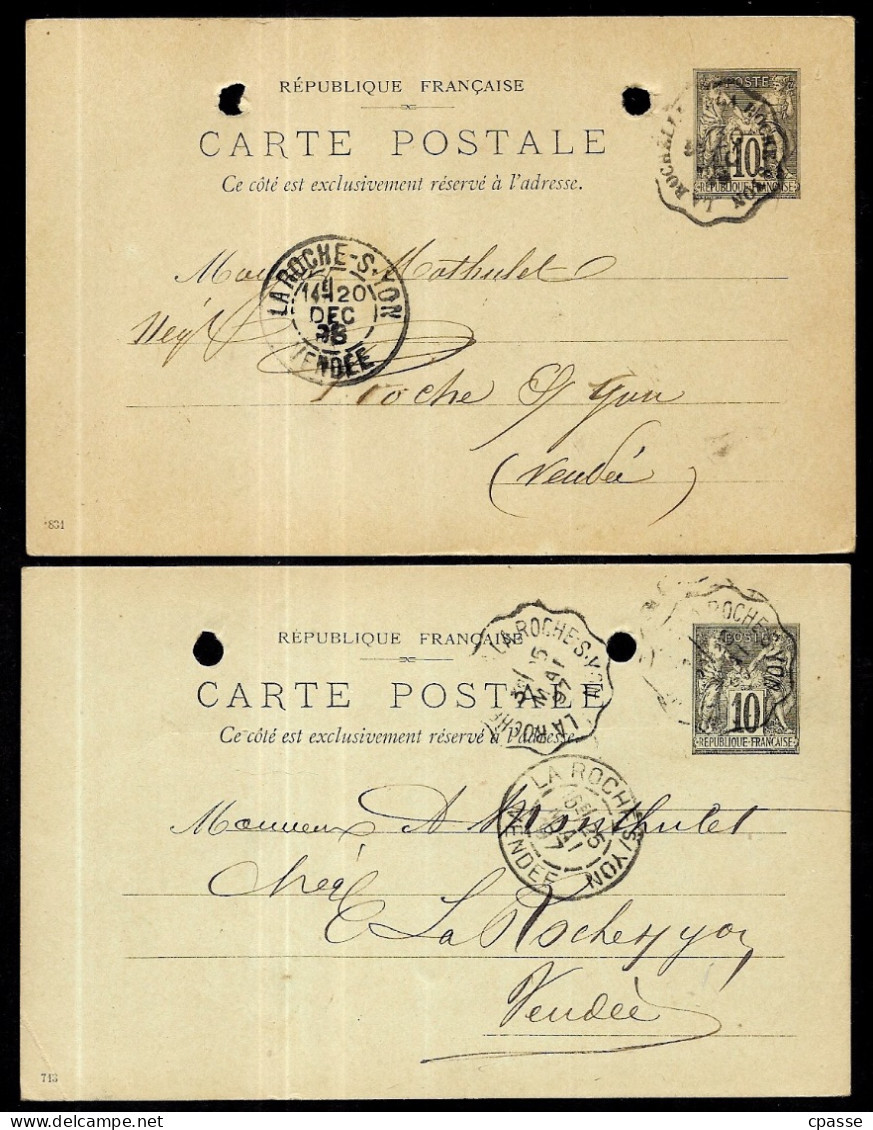 RÉPUBLIQUE FRANÇAISE
CARTE POSTALE
Ce côté est exclusivement réservé à l'adresse.
POSTE
10
RÉPUBLIQUE FRANÇAISE
LA ROCHE-S-YON
14-20
DEC
VENDÉE
Mothulet
Négt
Roche S/ Yon
(Vendée)
831
RÉPUBLIQUE FRANÇAISE
CARTE POSTALE
Ce côté est exclusivement réservé à l'adresse.
LA ROCHE-S-YON
15
MAI
97
POSTE
10
RÉPUBLIQUE FRANÇAISE
LA ROCHE-S-YON
LA ROCHE-S/YON
VENDÉE
Monsieur A Monthulet
Négt
La Roche s yon
Vendée
713
cpasse